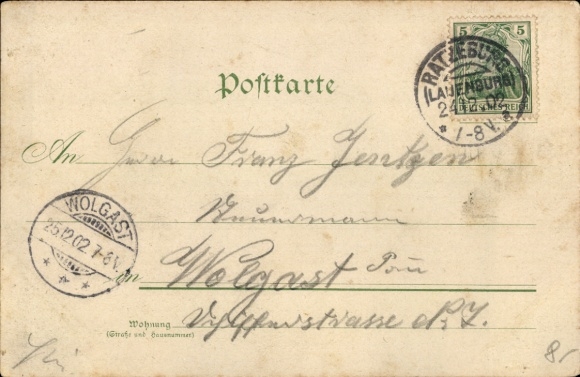 5 5
DEUTSCHES REICH
RATZEBURG
(LAUENBURG)
24.12.02
* 7-8 V.
Postkarte
An Herrn Franz Jentzen
Steuermann
WOLGAST
25.12.02 7-8 V.
* * *
in Wolgast Pom
Wohnung
(Straße und Hausnummer)
Schifferstrasse No 7.
8,-